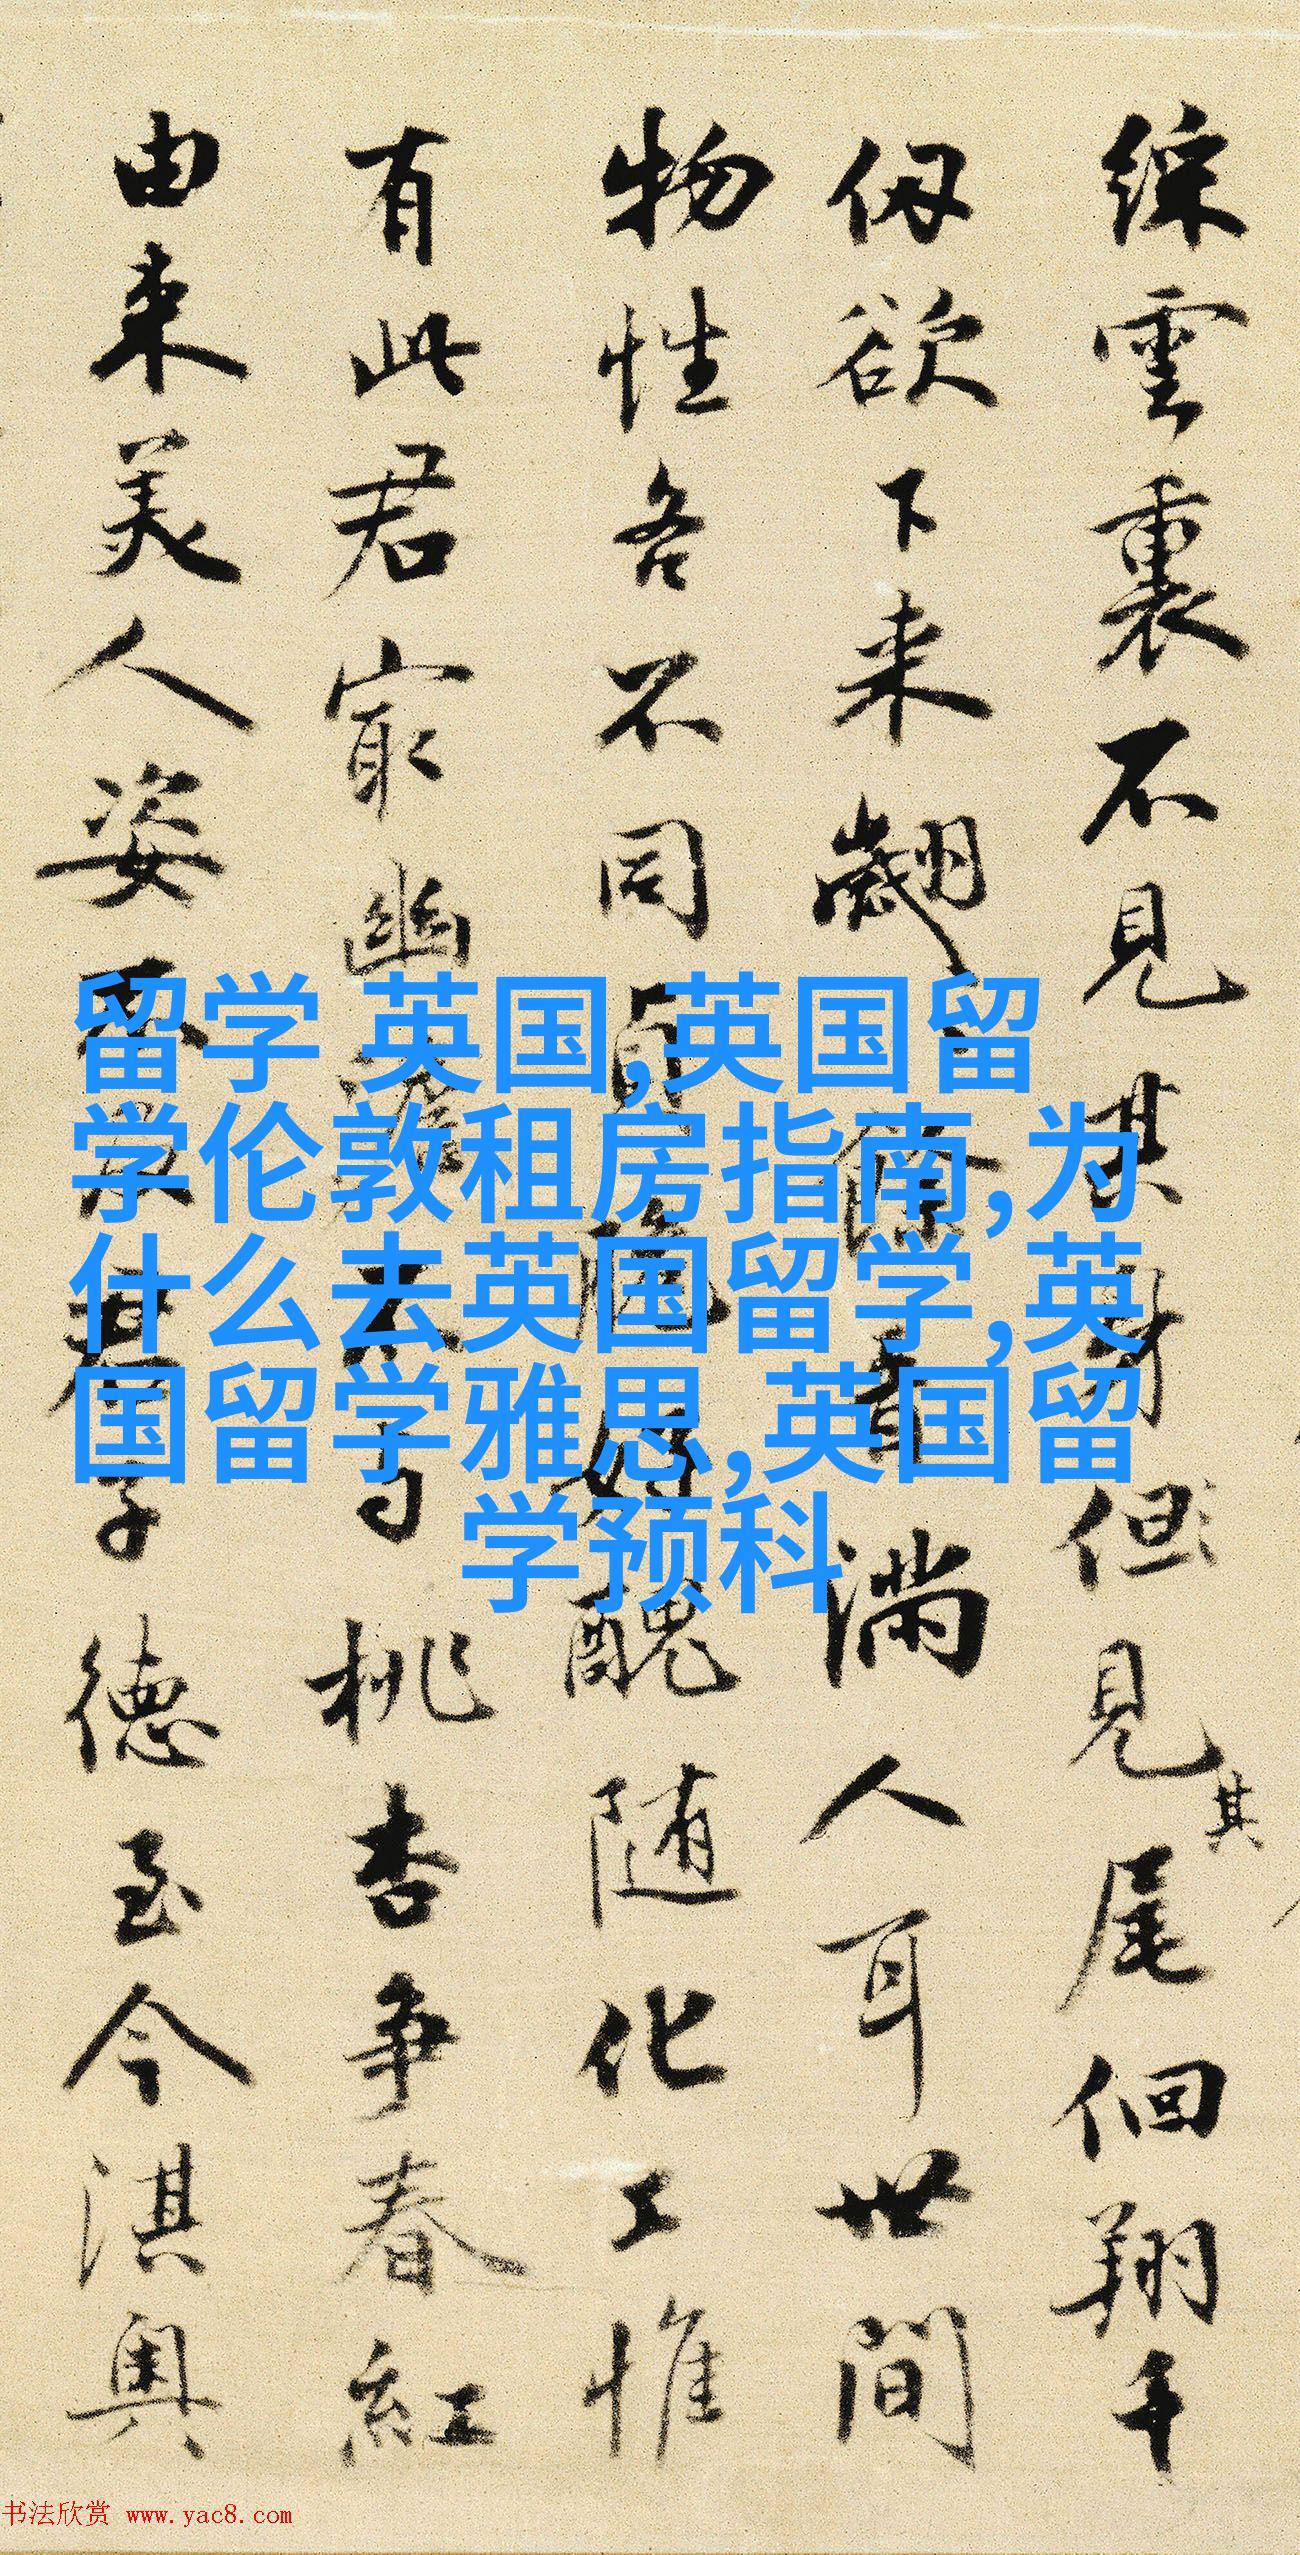 綵雲裏不見其身但見其尾佪翔千
仞欲下来翽餘音满人耳世間
物性各不同妍醜随化工惟
有此君冣幽不与桃杏争春紅
由来美人姿君子德至今淇奥
留学 英国,英国留
学伦敦租房指南,为
什么去英国留学,英
国留学雅思,英国留
学预科
书法欣赏 www.yac8.com